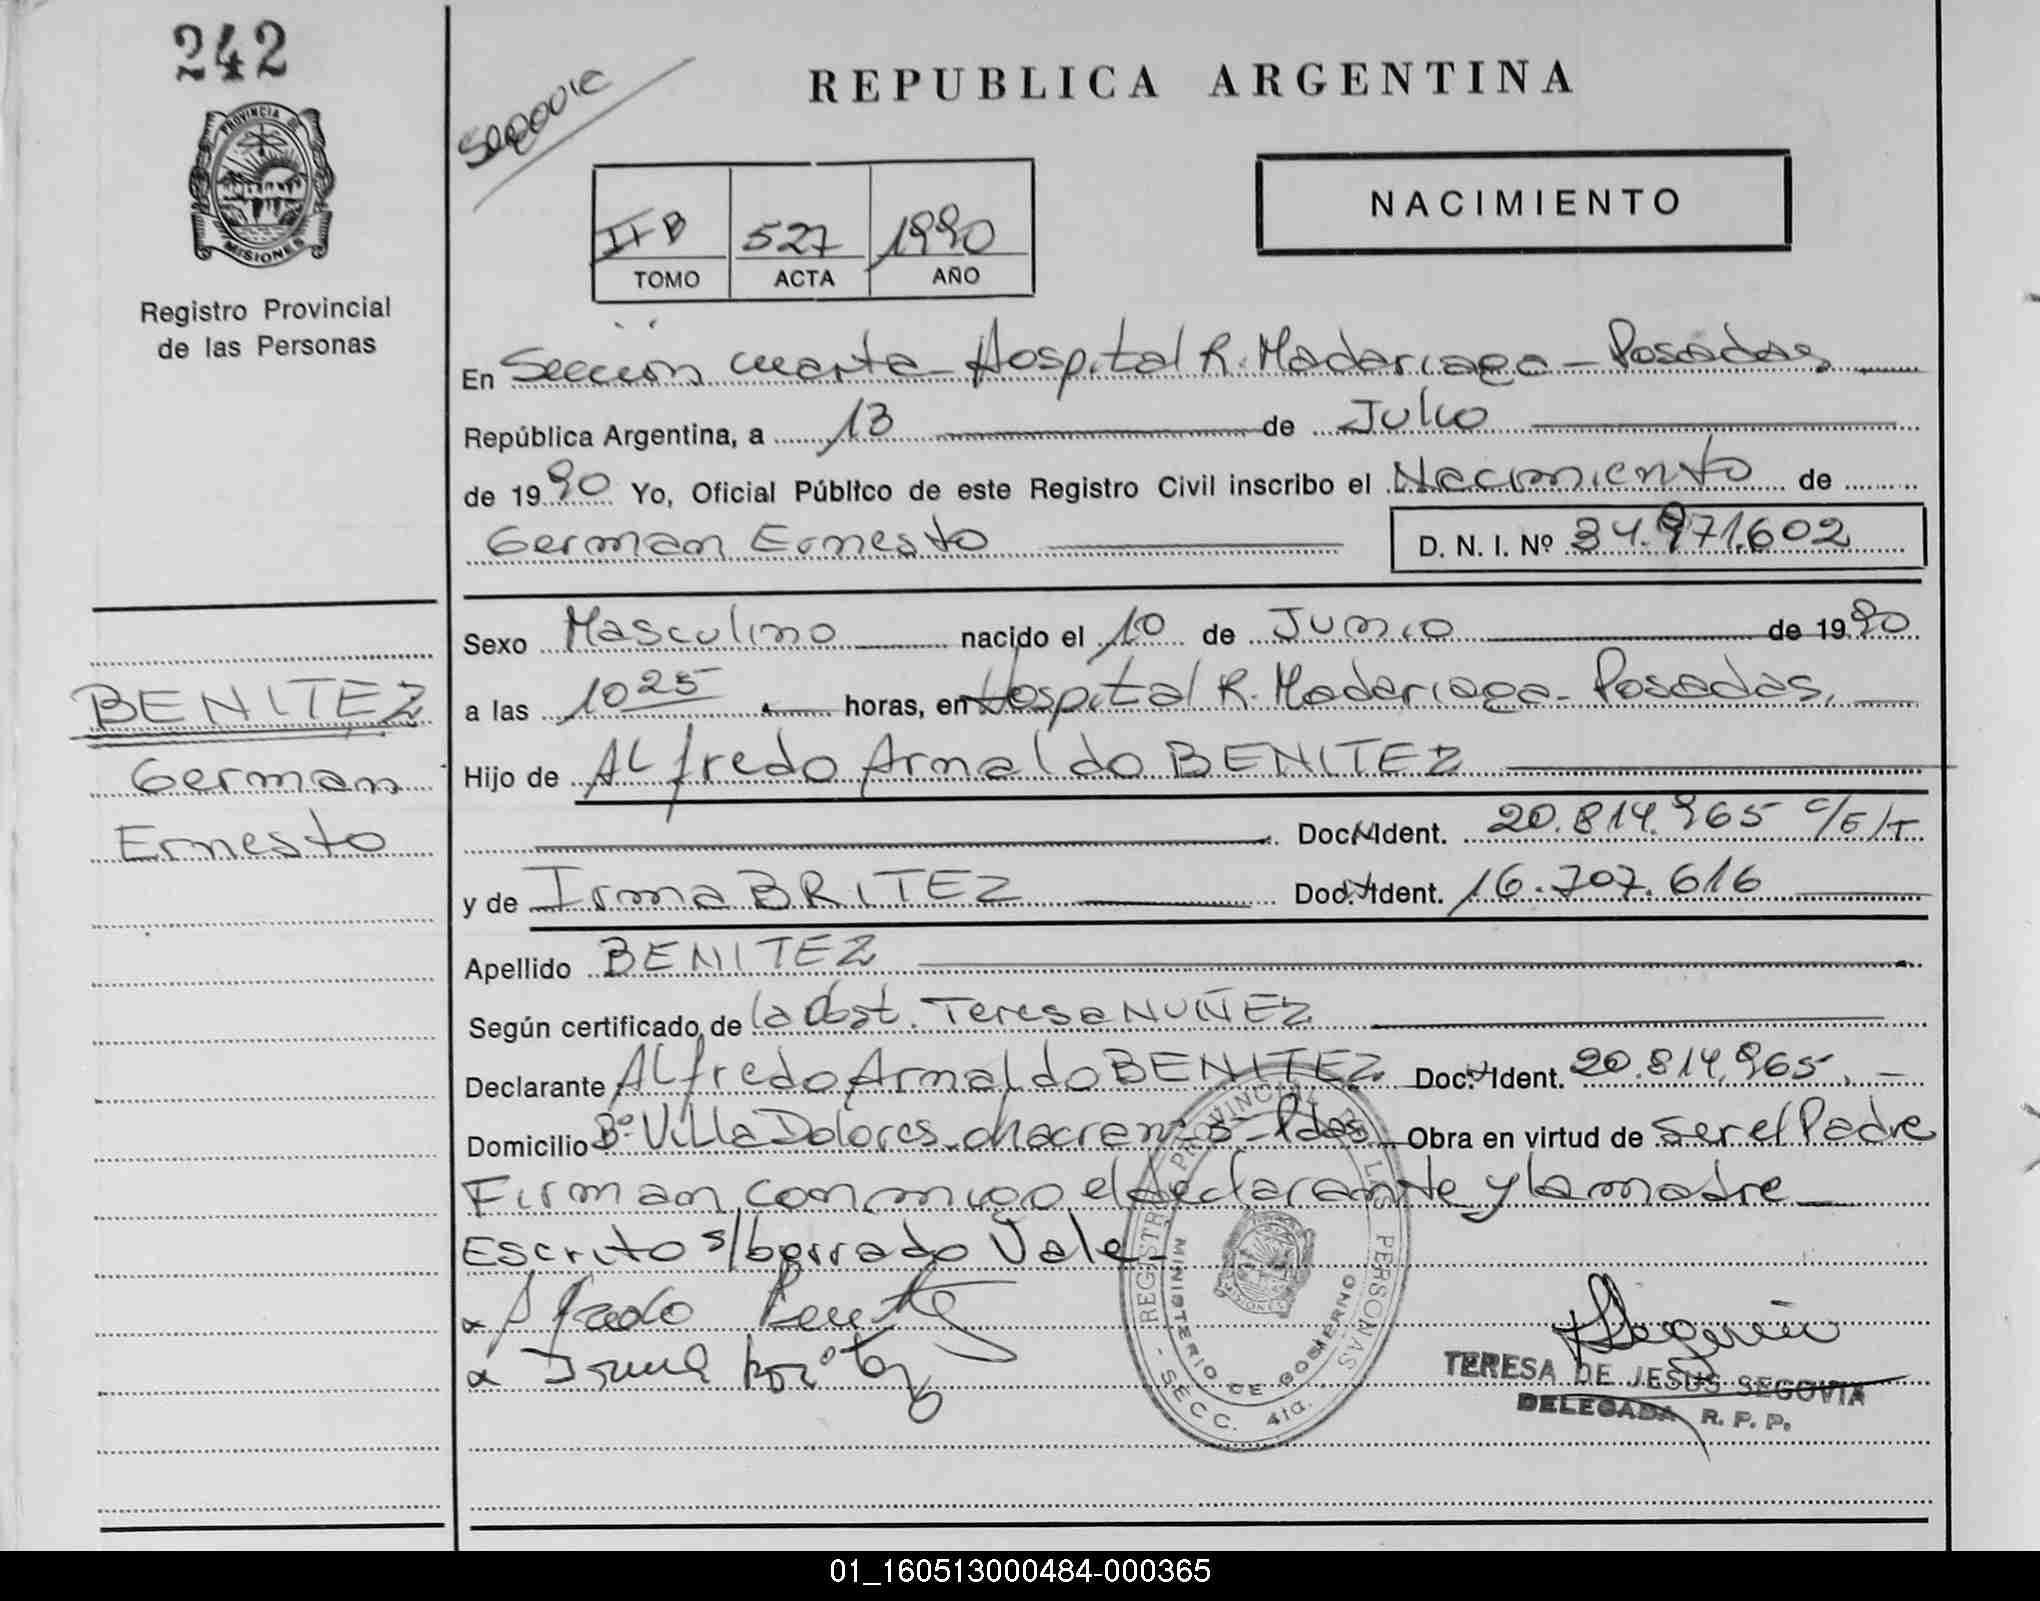 242
PROVINCIA DE
MISIONES
Registro Provincial
de las Personas
BENITEZ
German
Ernesto
Segovia
REPUBLICA ARGENTINA
NACIMIENTO
II B 527 1990
TOMO ACTA AÑO
En Sección cuarta - Hospital R. Madariaga - Posadas
República Argentina, a 13 de Julio
de 1990 Yo, Oficial Público de este Registro Civil inscribo el Nacimiento de
German Ernesto D. N. I. Nº 34.971.602
Sexo Masculino nacido el 10 de Junio de 1990
a las 10 25 horas, en Hospital R. Madariaga - Posadas.
Hijo de Alfredo Arnaldo BENITEZ
Doc. Ident. 20.814.965 c/E/T
y de Irma BRITEZ Doc. Ident. 16.707.616
Apellido BENITEZ
Según certificado de la Obst. Teresa NUÑEZ
Declarante Alfredo Arnaldo BENITEZ Doc. Ident. 20.814.965.
Domicilio Bº Villa Dolores - chacra nº - Pdas Obra en virtud de ser el Padre
Firman conmigo el declarante y la madre
Escrito s/borrado Vale -
Alfredo Benitez
Irma Britez
REGISTRO PROVINCIAL DE LAS PERSONAS
MINISTERIO DE GOBIERNO
MISIONES
- SECC. 4ta.
Segovia
TERESA DE JESUS SEGOVIA
DELEGADA R. P. P.
01_160513000484-000365